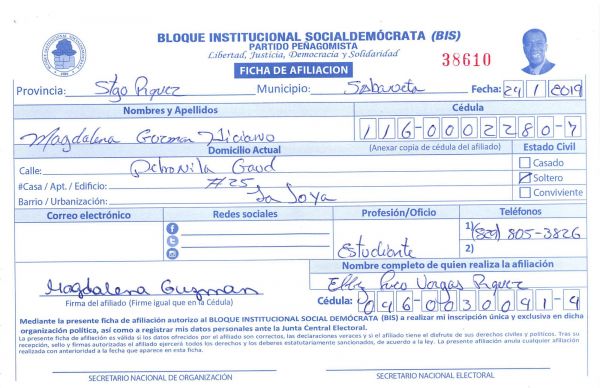 BLOQUE INSTITUCIONAL SOCIALDEMÓCRATA (BIS)
PARTIDO PEÑAGOMISTA
Libertad, Justicia, Democracia y Solidaridad
38610
FICHA DE AFILIACION
Provincia: Stgo Rguez Municipio: Sabaneta Fecha: 24/1/2019
Nombres y Apellidos Cédula
Magdalena Guzman Liciano 116-0002280-7
Domicilio Actual (Anexar copia de cédula del afiliado) Estado Civil
Calle: Petronila Gaud Casado
#Casa / Apt. / Edificio: #25 Soltero
Barrio / Urbanización: La Joya Conviviente
Correo electrónico Redes sociales Profesión/Oficio Teléfonos
1) (829) 805-3826
Estudiante 2)
Nombre completo de quien realiza la afiliación
Magdalena Guzman Vargas Rguez
Firma del afiliado (Firme igual que en la Cédula) Cédula: 046-0030091-9
Mediante la presente ficha de afiliación autorizo al BLOQUE INSTITUCIONAL SOCIAL DEMÓCRATA (BIS) a realizar mi inscripción única y exclusiva en dicha
organización política, así como a registrar mis datos personales ante la Junta Central Electoral.
La presente ficha de afiliación es válida si los datos ofrecidos por el afiliado son correctos, las declaraciones veraces y si el afiliado tiene el disfrute de sus derechos civiles y políticos. Tras su
recepción, sello y firmas autorizadas el afiliado ejercerá todos los derechos y los deberes estatutariamente sancionados, de acuerdo a la ley. La presente afiliación anula cualquier afiliación
realizada con anterioridad a la fecha que aparece en esta ficha.
SECRETARIO NACIONAL DE ORGANIZACIÓN SECRETARIO NACIONAL ELECTORAL